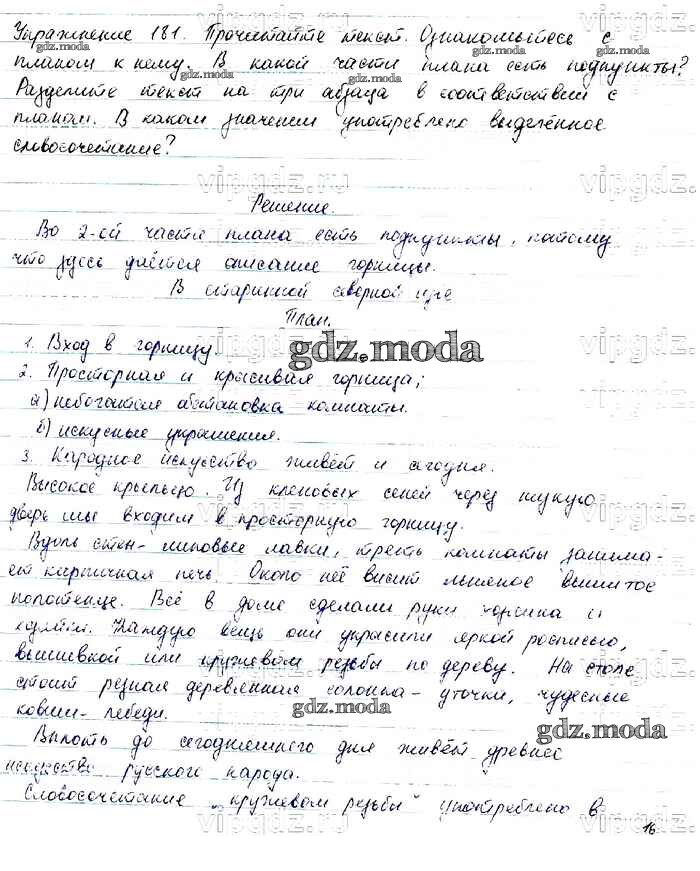 Упражнение 181. Прочитайте текст. Ознакомьтесь с
планом к нему. В какой части плана есть подпункты?
Разделите текст на три абзаца в соответствии с
планом. В каком значении употреблено выделенное
словосочетание?
Решение.
Во 2-ой части плана есть подпункты, потому
что здесь даётся описание горницы.
В старинной северной избе
План.
1. Вход в горницу.
2. Просторная и красивая горница;
а) небогатая обстановка комнаты.
б) искусные украшения.
3. Народное искусство живёт и сегодня.
Высокое крыльцо. Из кленовых сеней через
дверь мы входим в просторную горницу.
Вдоль стен - липовые лавки, треть комнаты занима-
ет кирпичная печь. Около неё висит льняное вышитое
полотенце. Всё в доме сделали руки хозяина и
хозяйки. Каждую вещь они украсили яркой росписью,
вышивкой или кружевом резьбы по дереву. На столе
стоит резная деревянная солонка - уточки, чудесные
ковши - лебеди.
Вплоть до сегодняшнего дня живёт древнее
искусство русского народа.
Словосочетание „кружевом резьбы" употреблено в
16
gdz.moda
gdz.moda
gdz.moda
gdz.moda
gdz.moda
gdz.moda
gdz.moda
vipgdz.ru
vipgdz.ru
vipgdz.ru
vipgdz.ru